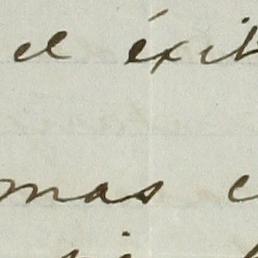 el éxit
mas e